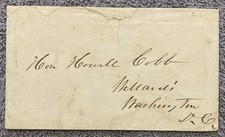 Hon Howell Cobb
Willard's
Washington
D. C.